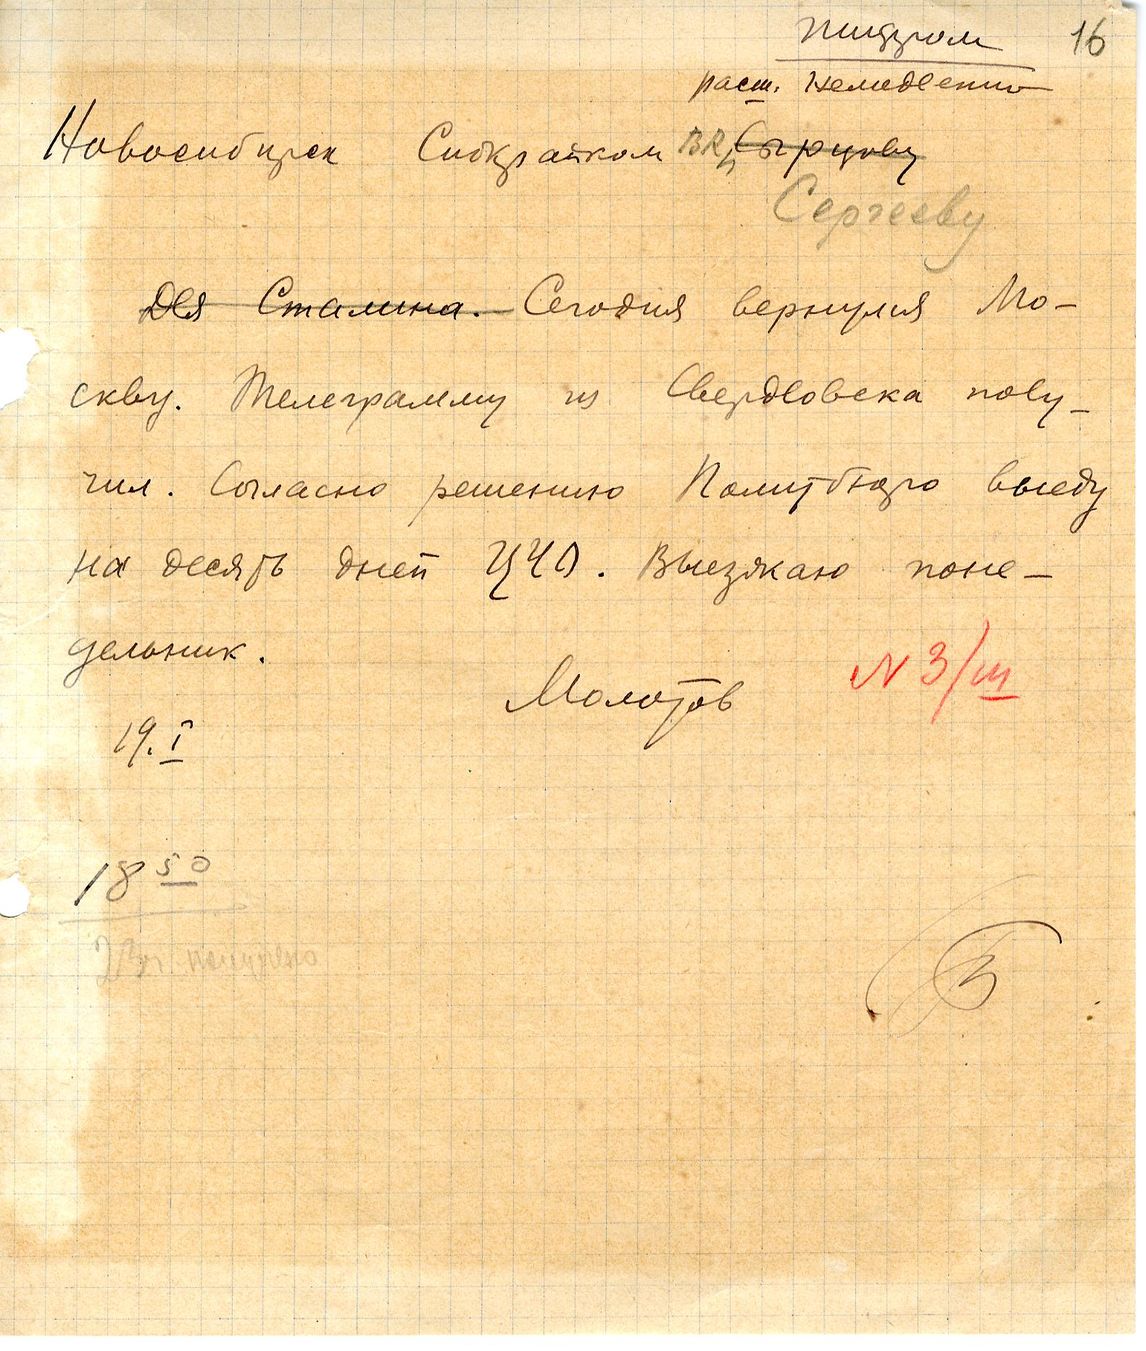 Шифром 16
расш. немедленно
Новосибирск Сибкрайком Сырцову
Сергееву
Для Сталина. Сегодня вернулся Мо-
скву. Телеграмму из Свердловска полу-
чил. Согласно решению Политбюро выеду
на десять дней ЦЧО. Выезжаю поне-
дельник.
Молотов
N 3/ш
19.I
18 50